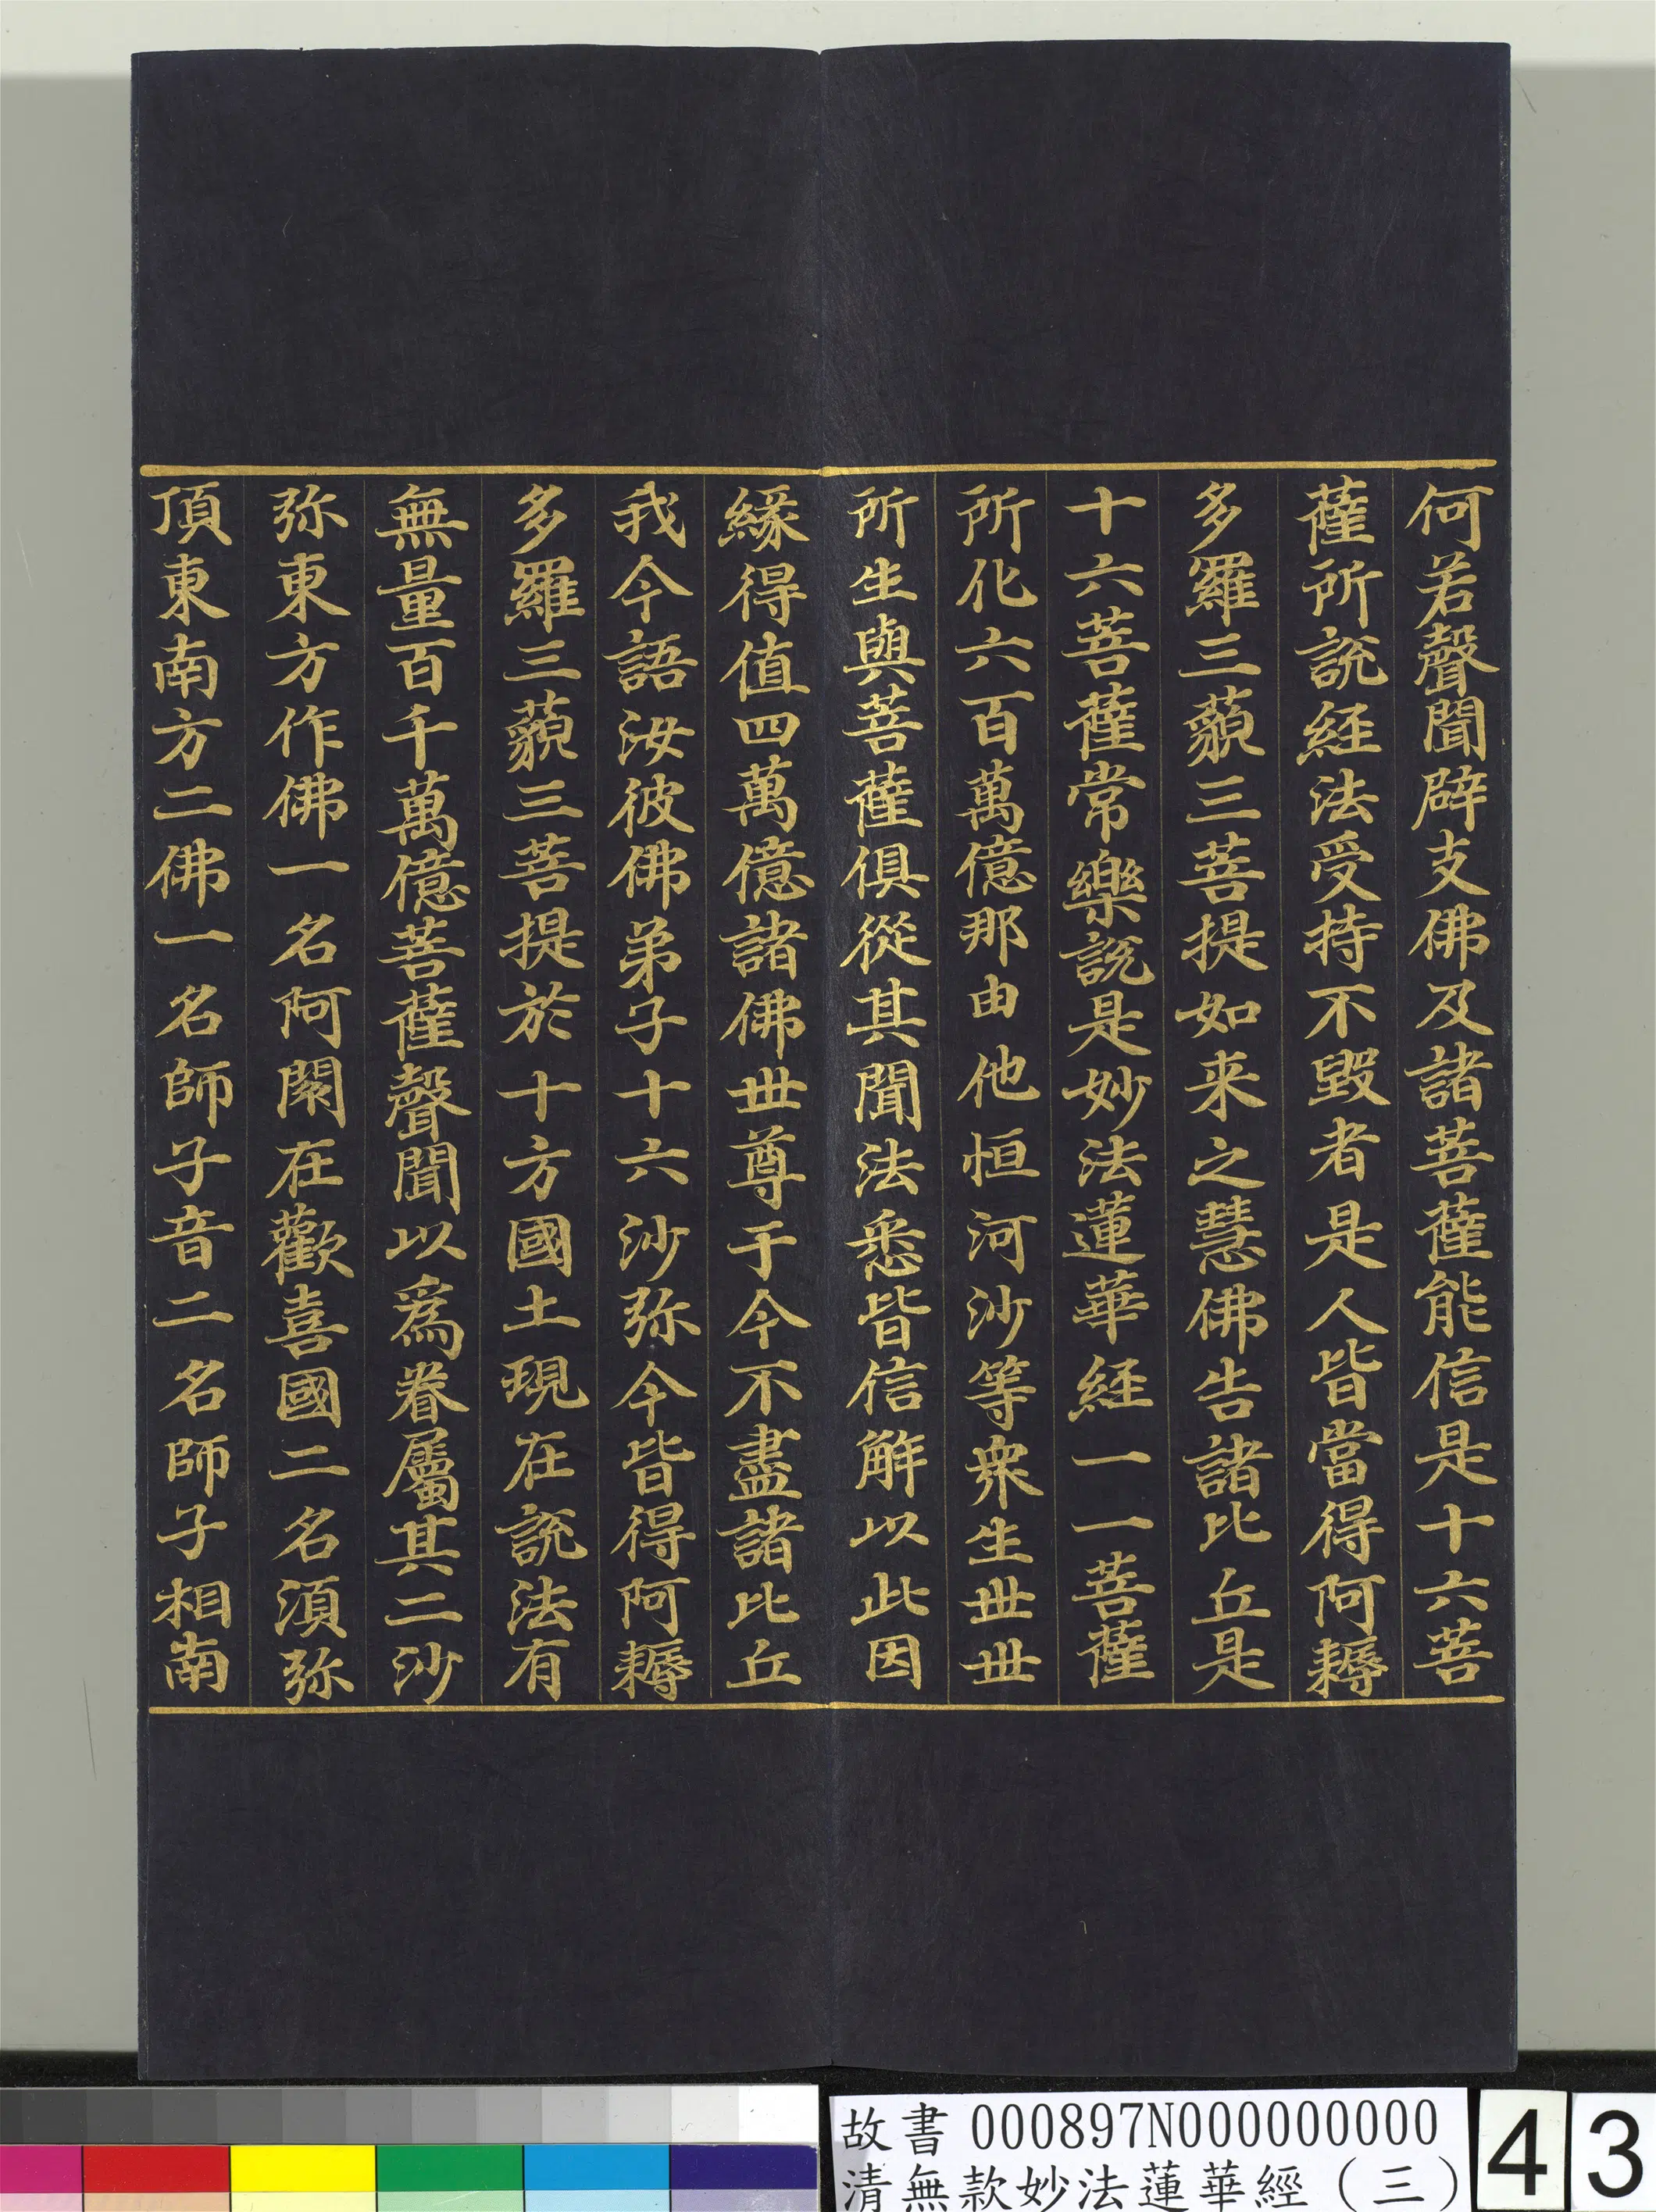 何若聲聞辟支佛及諸菩薩能信是十六菩
薩所說経法受持不毀者是人皆當得阿耨
多羅三藐三菩提如来之慧佛告諸比丘是
十六菩薩常樂說是妙法蓮華経一一菩薩
所化六百萬億那由他恒河沙等衆生世世
所生與菩薩俱從其聞法悉皆信解以此因
緣得值四萬億諸佛世尊于今不盡諸比丘
我今語汝彼佛弟子十六沙弥今皆得阿耨
多羅三藐三菩提於十方國土現在說法有
無量百千萬億菩薩聲聞以爲眷屬其二沙
弥東方作佛一名阿閦在歡喜國二名須弥
頂東南方二佛一名師子音二名師子相南
故書 000897N000000000
清無款妙法蓮華經（三）
43